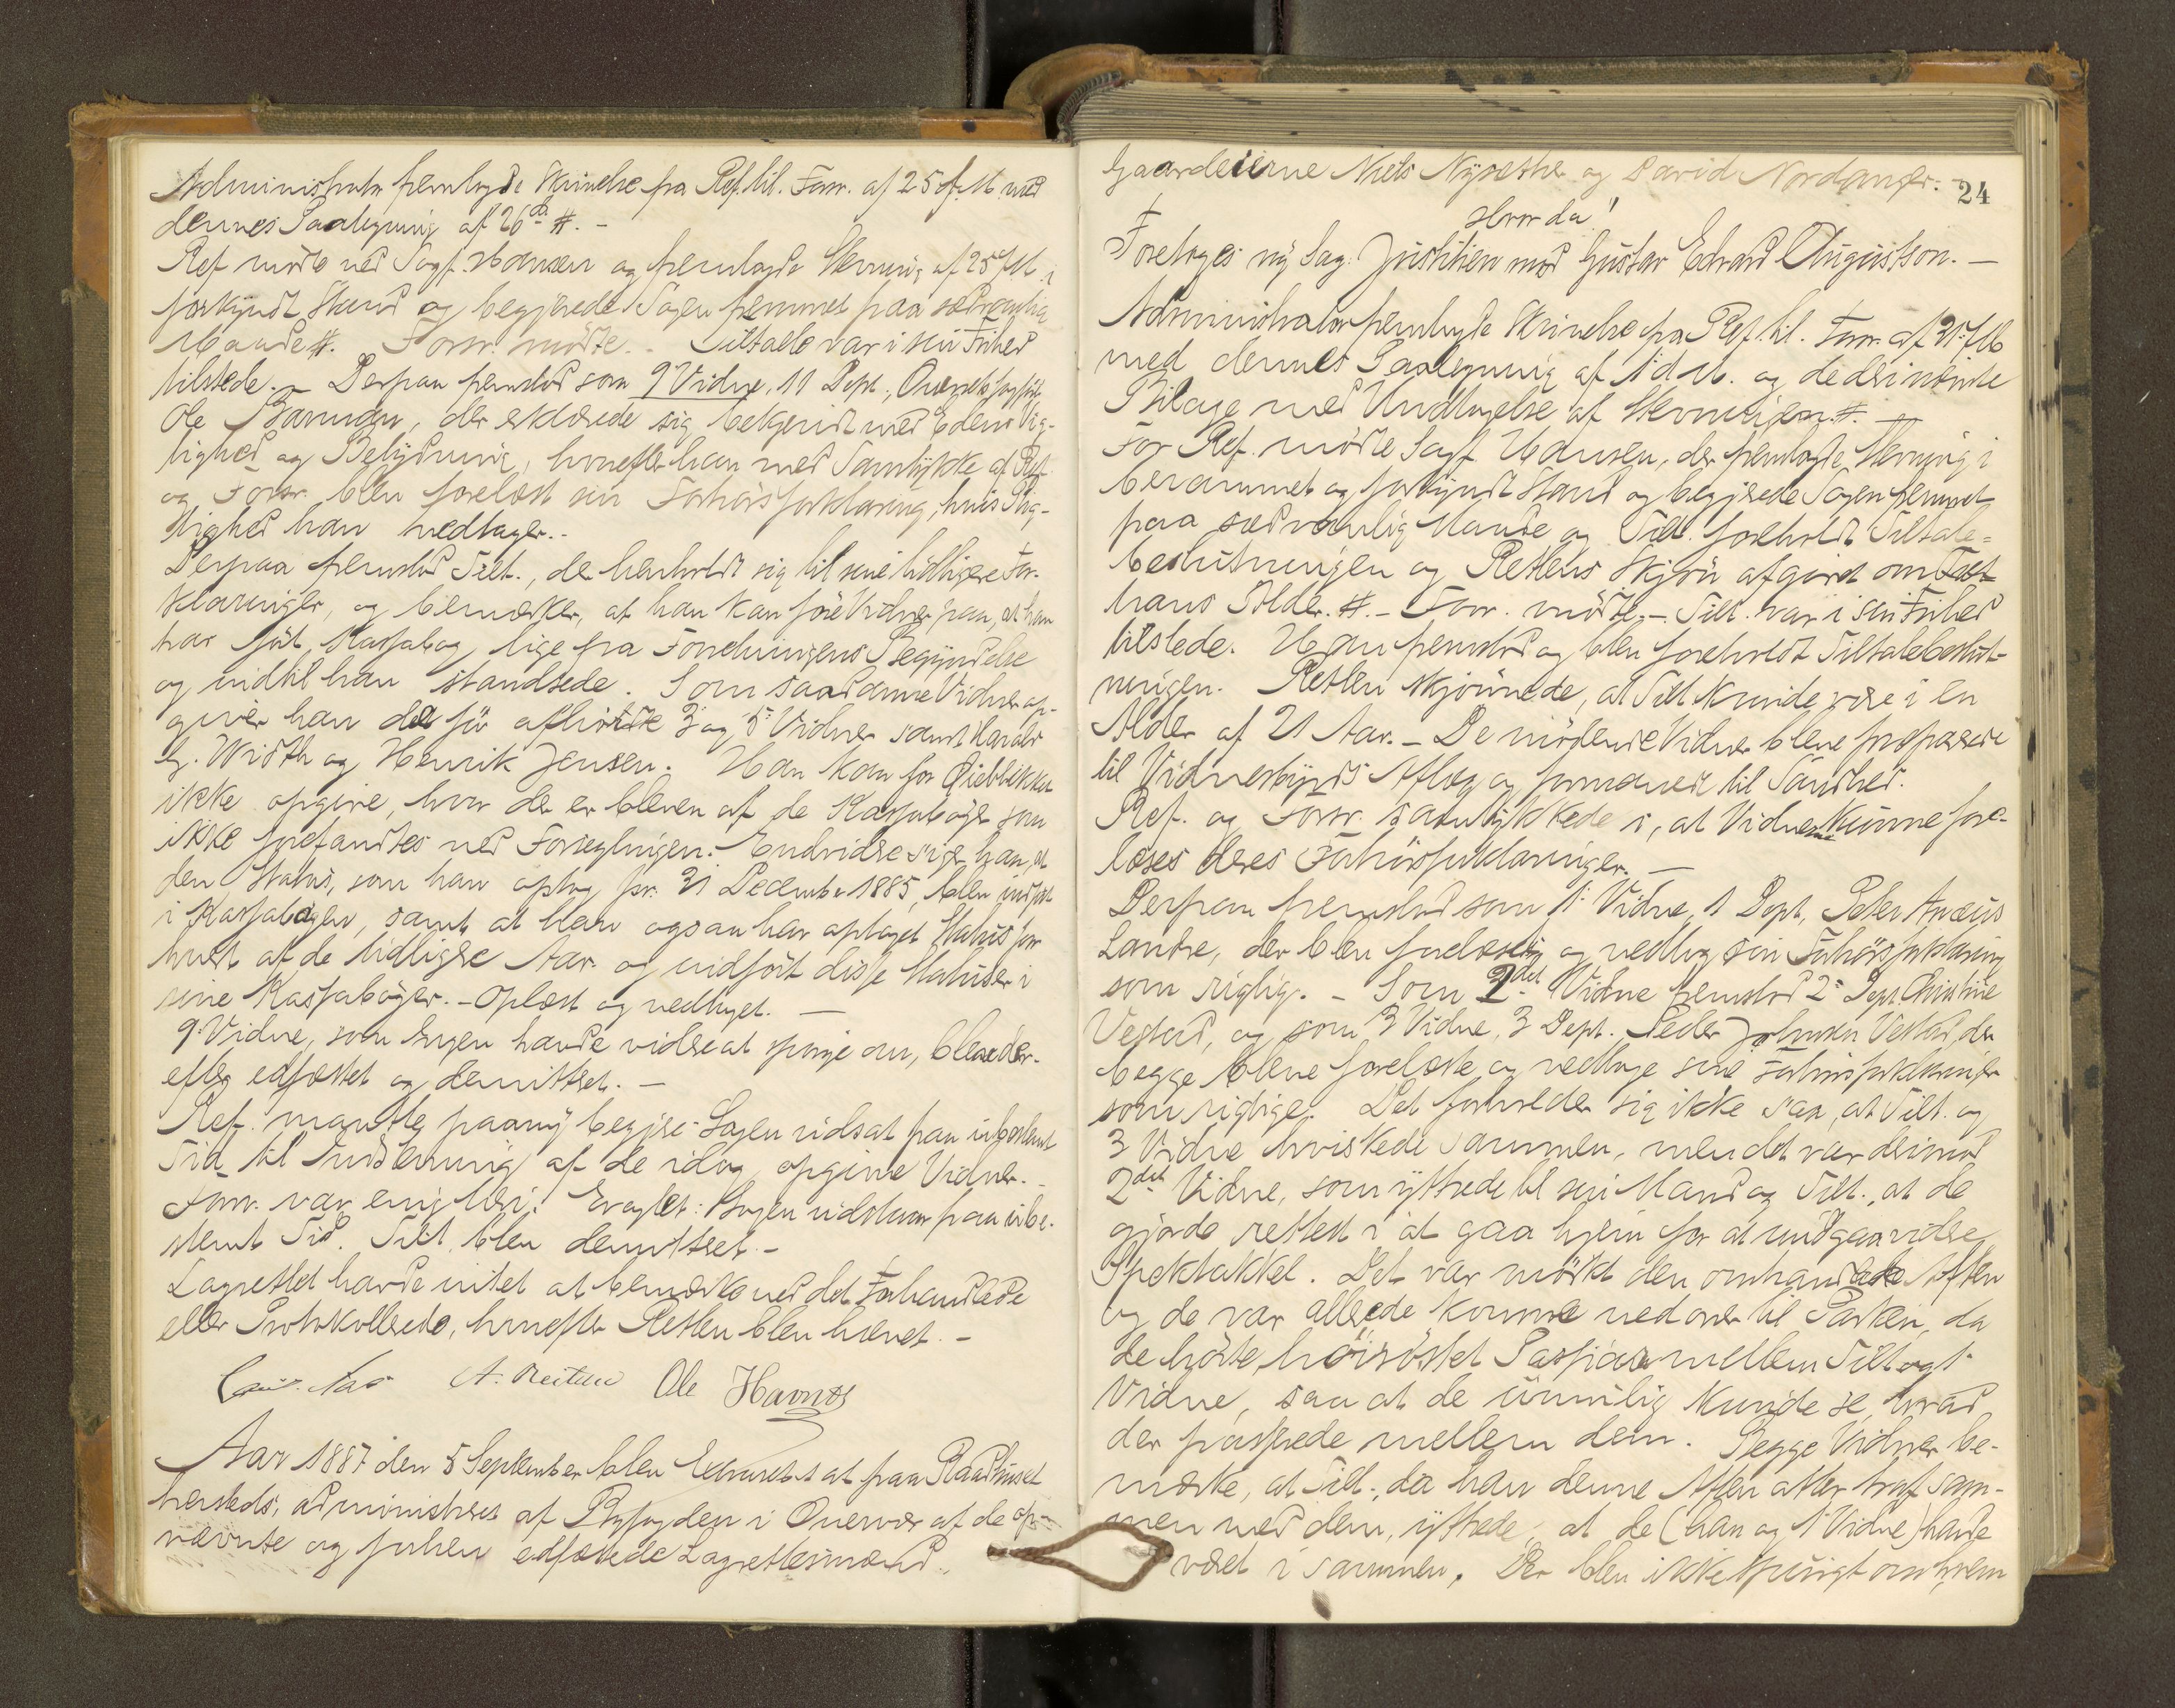 Administrator fremlagde Skrivelse fra Ref. til Forsv. af 25 f. M. med
dennes Paategning af 26 d. #. -
Ref. mødte ved Sagf. Hansen og fremlagde Stevning af 25 f. M. i
forkyndt Stand og begjærede Sagen fremmet paa sædvanlig
Maade #. Forsv. mødte. - Tiltalte var i sin Frihed
tilstede. - Derpaa fremstod som 9' Vidne, 11 Dept., Overretssagfører
Ole, der erklærede sig bekjendt med Edens Vig-
tighed og Betydning, hvorefter han med Samtykke af Ref.
og Forsv. blev forelæst sin Forhørsforklaring, hvis Rig-
tighed han vedtager. -
Derpaa fremstod Tilt., der henholdt sig til sine tidligere For-
klaringer, og bemærker, at han kan føre Vidner paa, at han
har ført Kassabog lige fra Forretningens Begyndelse
og indtil han standsede. Som saadanne Vidner op-
giver han de før afhørte 3' og 5' Vidner samt Harald
G. Width og Henrik Jensen. Han kan for Øieblikket
ikke opgive, hvor der er bleven af de Kassabøger som
ikke forefandtes ved Forseglingen. Endvidere siger han, at
den Status, som han optog pr. 31 December 1885, blev indført
i Kassabogen, samt at han ogsaa har optaget Status for
hvert af de tidligere Aar og indført disse Statuser i
sine Kassabøger. - Oplæst og vedtaget. -
9' Vidne, som Ingen havde videre at spørge om, blev der-
efter edfæstet og demitteret. -
Ref. maatte paany begjære Sagen udsat paa ubestemt
Tid til Indstevning af de idag opgivne Vidner. -
Forsv. var enig heri. Eragtet: Sagen udstaar paa ube-
stemt Tid. Tilt. blev demitteret. -
Lagrettet havde intet at bemærke ved det Forhandlede
eller Protokollerede, hvorefter Retten blev hævet. -
A. Reitan Ole Havnes
Aar 1887 den 5 September blev Extraret sat paa Raadhuset
hersteds, administreret af Byfogden i Overvær af de op-
nævnte og forhen edfæstede Lagrettesmænd
Gaardeierne Niels Nysæther og David Nordanger. -
24
Hvorda!
Foretages ny Sag: Justitien mod Gustav Edvard Augustson. -
Administrator fremlagde Skrivelse fra Ref. til Forsv. af 31 f. M.
med dennes Paategning af 1 d. M. og de deri nævnte
Bilage med Undtagelse af Stevningen #. -
For Ref. mødte Sagf. Hansen, der fremlagde Stevning i
berammet og forkyndt Stand og begjærede Sagen fremmet
paa sædvanlig Maade og Tilt. foreholdt Tiltale-
beslutningen og Rettens Skjøn afgivet om
hans Alder. #. - Forsv. mødte. - Tilt. var i sin Frihed
tilstede. Han fremstod og blev foreholdt Tiltalebeslut-
ningen. Retten skjønnede, at Tilt. kunde være i en
Alder af 21 Aar. - De mødende Vidner bleve præparerede
til Vidnesbyrds Aflæg og formanede til Sandhed.
Ref. og Forsv. samtykkede i, at Vidnerne kunne fore-
læses deres Forhørsforklaringer. -
Derpaa fremstod som 1' Vidne, 1 Dept., Peter Anæus
Landre, der blev forelæst og vedtog sin Forhørsforklaring
som rigtig. - Som 2det Vidne fremstod 2' Dept. Christine
Vestad, og som 3 Vidne, 3 Dept. Peder Johnsen Vestad, der
begge bleve forelæste og vedtoge sine Forhørsforklaringer
som rigtige. Det forholder sig ikke saa, at Tilt. og
3 Vidne hviskede sammen, men det var derimod
2det Vidne, som yttrede til sin Mand og Tilt., at de
gjorde rettest i at gaa hjem for at undgaa videre
Spektakkel. Det var mørkt den omhandlede Aften
og de var allerede komne nedover til Parken, da
de hørte høirøstet Passiar mellem Tilt. og 1'
Vidne, saa at de umulig kunde se, hvad
der passerede mellem dem. Begge Vidner be-
mærke, at Tilt., da han denne Aften atter traf sam-
men med dem, yttrede, at de (han og 1' Vidne) havde
været i sammen. Der blev ikke spurgt om hvem